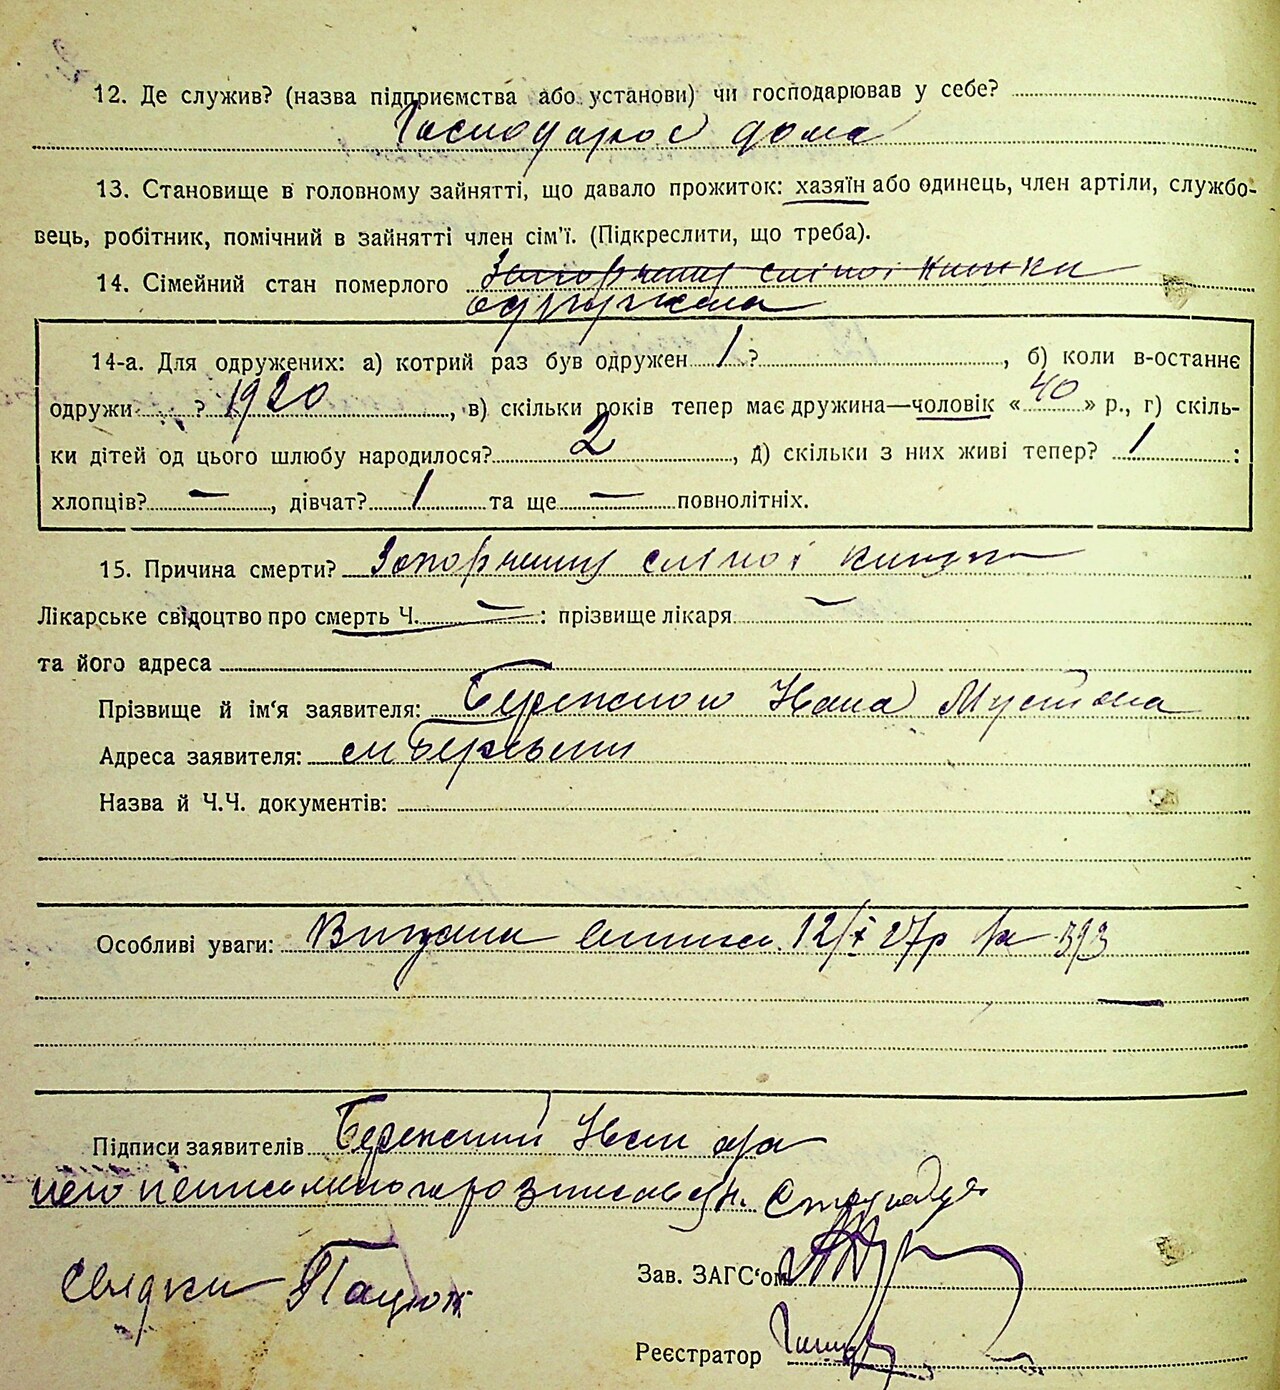 12. Де служив? (назва підприємства або установи) чи господарював у себе?
Господарює дома
13. Становище в головному зайнятті, що давало прожиток: хазяїн або одинець, член артіли, службо-
вець, робітник, помічний в зайнятті член сім'ї. (Підкреслити, що треба).
14. Сімейний стан померлого Запорчению сліпої кишки
одружена
14-а. Для одружених: а) котрий раз був одружен 1 ?, б) коли в-останнє
одружи ? 1920, в) скільки років тепер має дружина—чоловік « 40 » р., г) скіль-
ки дітей од цього шлюбу народилося? 2, д) скільки з них живі тепер? 1 :
хлопців? —, дівчат? 1 та ще — повнолітніх.
15. Причина смерти? Запорчению сліпої кишки
Лікарське свідоцтво про смерть Ч. — : прізвище лікаря —
та його адреса
Прізвище й ім'я заявителя: Ивана
Адреса заявителя: см
Назва й Ч.Ч. документів:
Особливі уваги: 12/X 27р № 393
Підписи заявителів Иван а за
него
Свідки Пацюк
Зав. ЗАГС'ом
Реєстратор